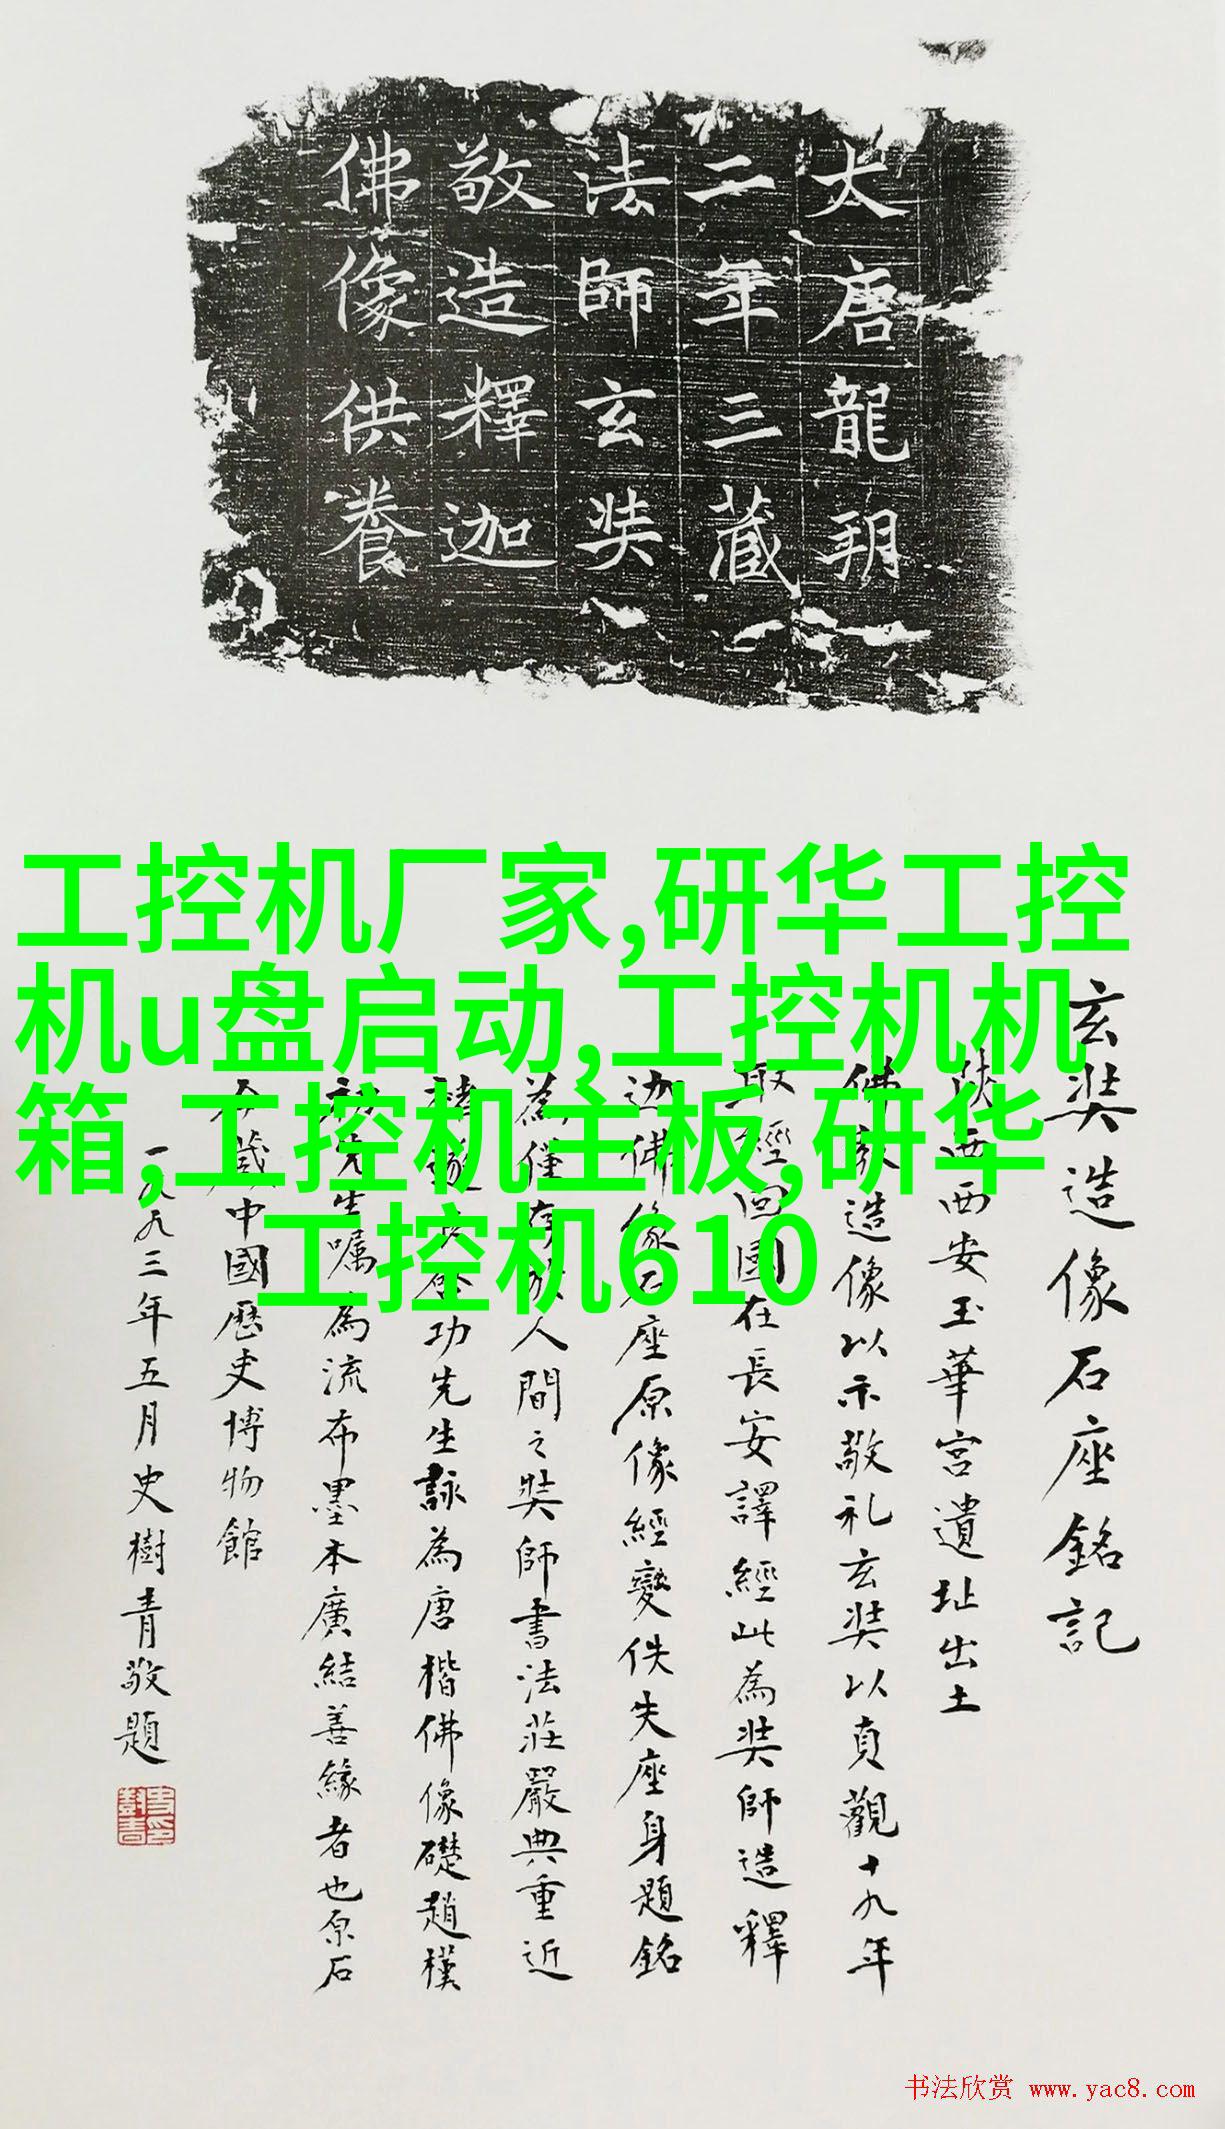 大唐龍朔
二年三藏
法師玄奘
敬造釋迦
佛像供養
工控机厂家,研华工控
机u盘启动,工控机机
箱,工控机主板,研华
工控机610
玄奘造像石座銘記
陝西西安玉華宮遺址出土
佛教造像以示敬礼玄奘以貞觀十九年
取經回國在長安譯經此為奘師造釋
迦佛像石座原像經變佚失座身題銘
為僅存於人間之奘師書法莊嚴典重近
功先生詠為唐楷佛像礎趙樸
初先生囑為流布墨本廣結善緣者也原石
今藏中國歷史博物館
一九九三年五月史樹青敬題
书法欣赏 www.yac8.com